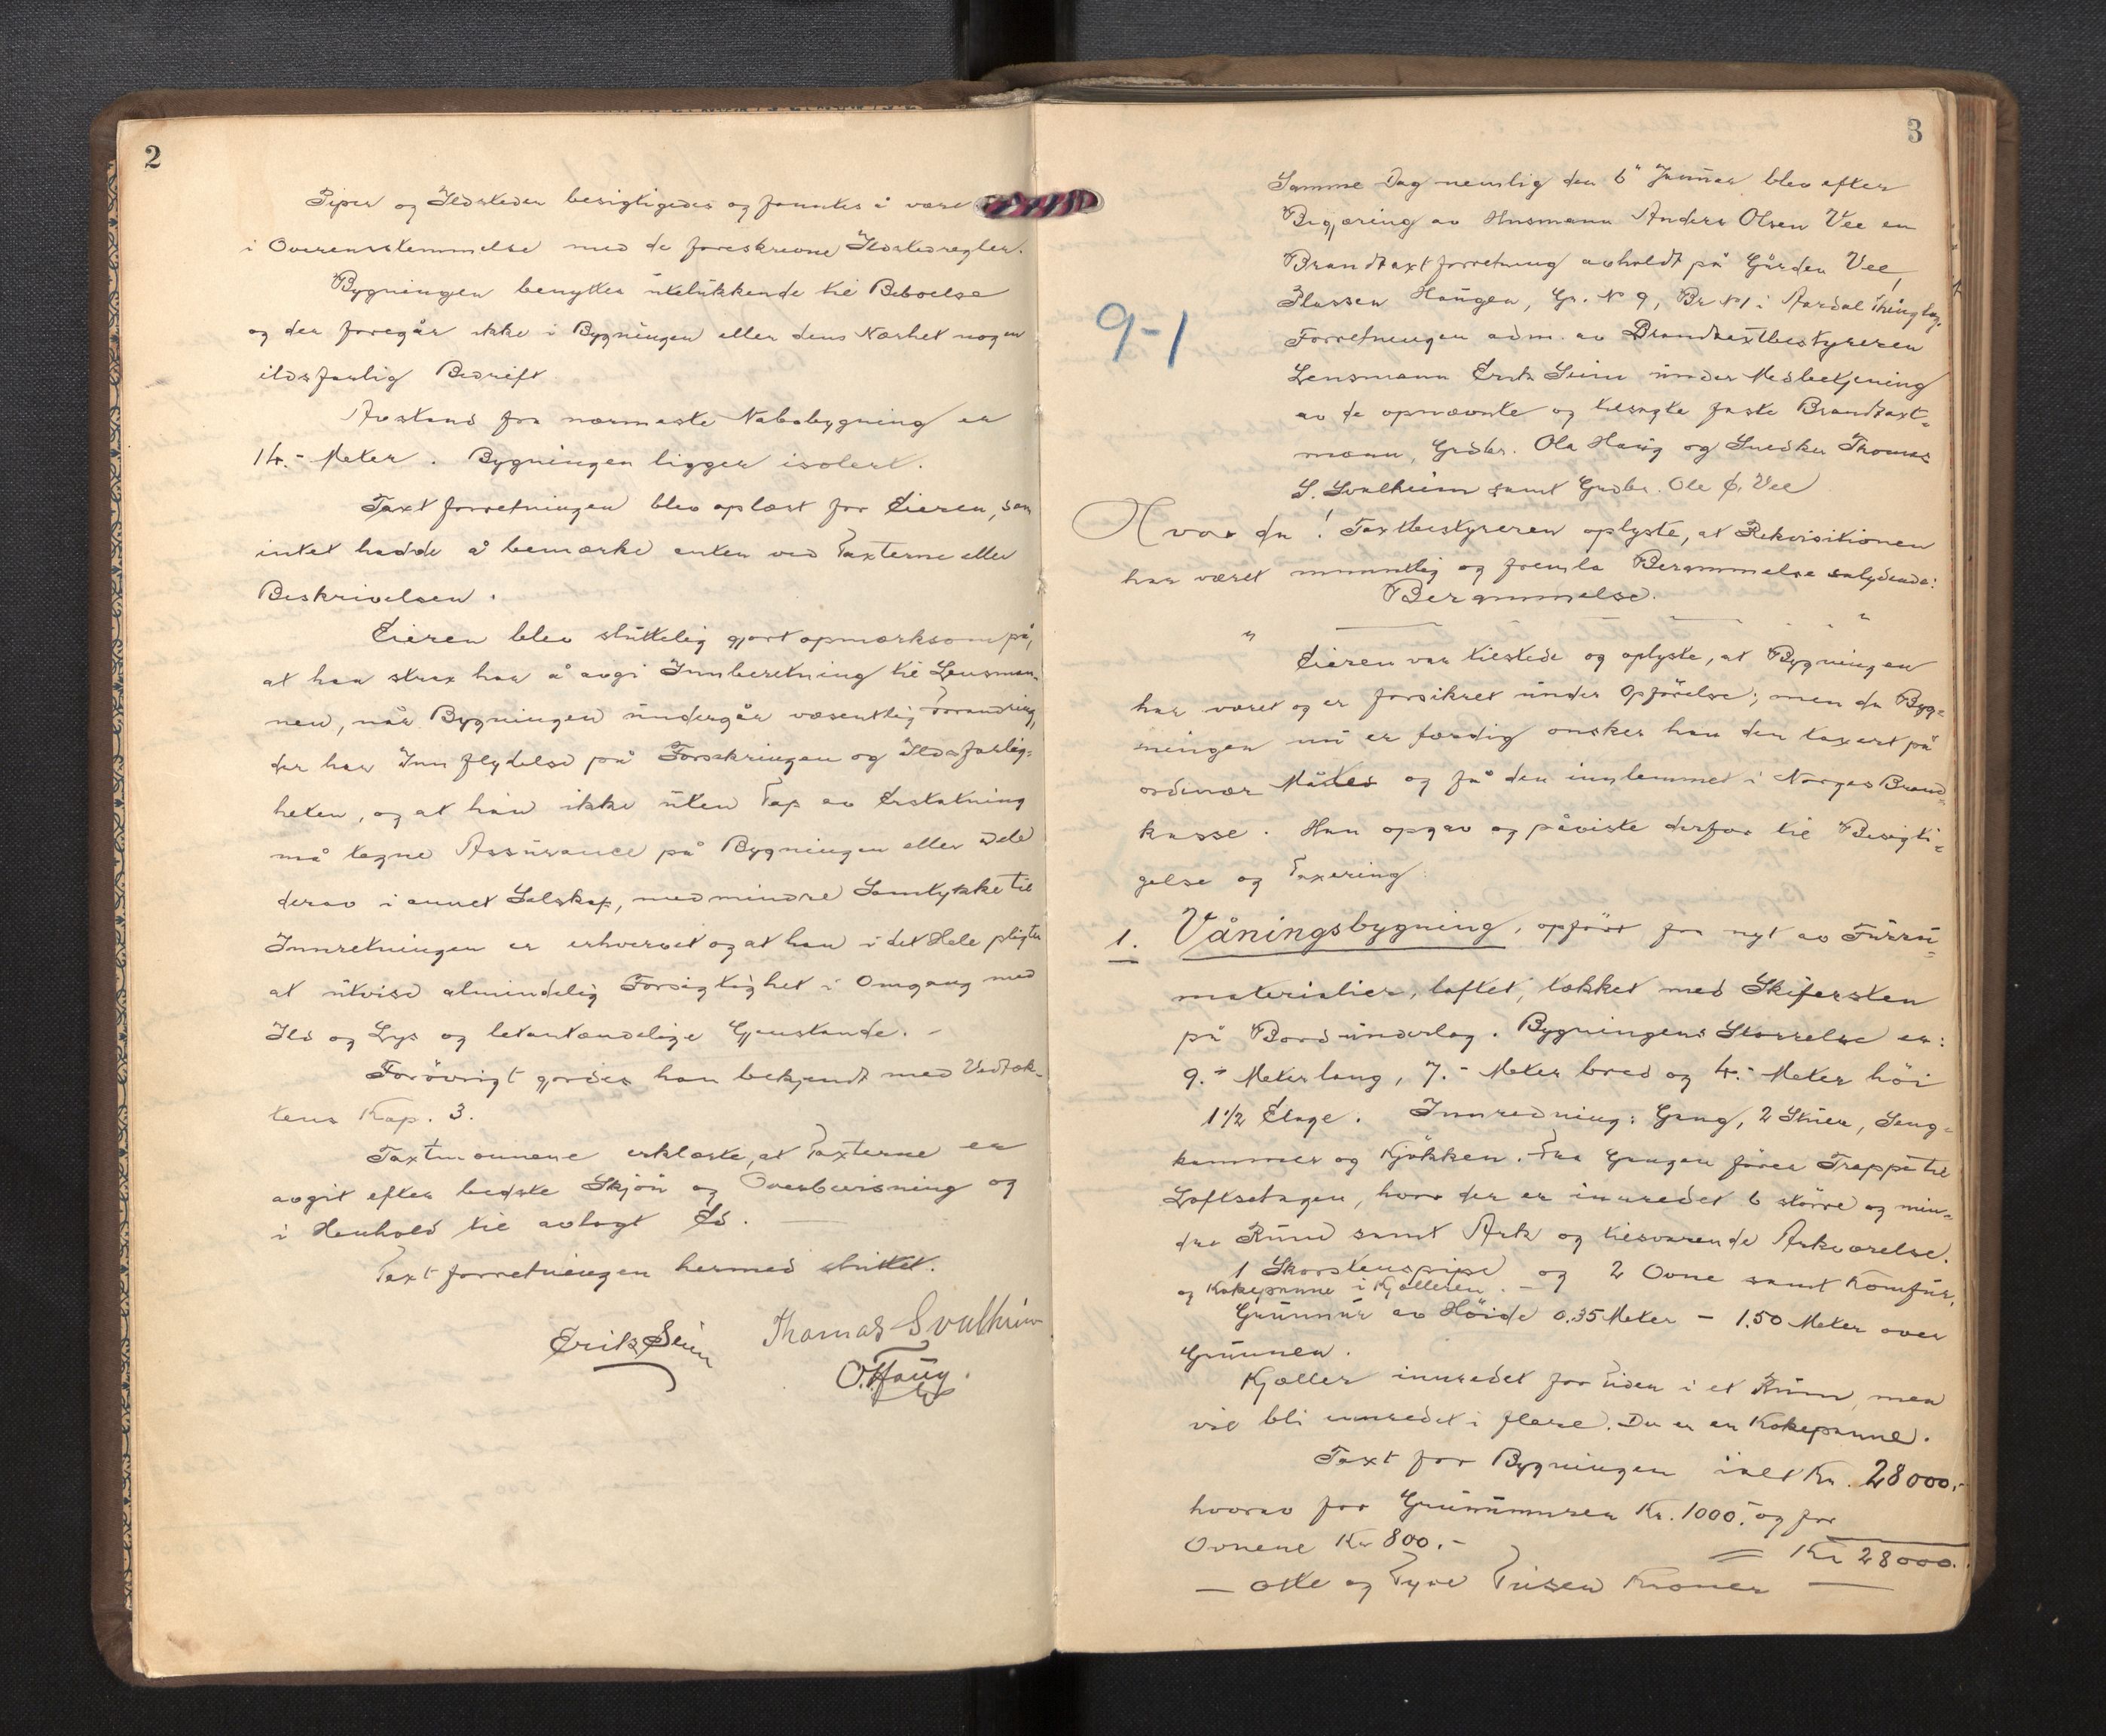 2
Piper og Ildsteder besigtigedes og fanntes å være
i Overensstemmelse med de foreskrevne Ildstedregler.
Bygningen benyttes utelukkende til Beboelse
og der foregår ikke i Bygningen eller dens Nærhet nogen
ildsfarlig Bedrift
Avstand fra nærmaste Nabobygning er
14.- Meter. Bygningen ligger isolert.
Taxtforretningen blev oplæst for Eieren, som
intet hadde å bemærke enten ved Taxterne eller
Beskrivelsen.
Eieren blev sluttelig gjort opmærksom på,
at han strax har å avgi Innberetning til Lensman-
nen, når Bygningen undergår væsentlig Forandring,
der har Innflydelse på Forsikringen og Ildsfarlig-
heten, og at han ikke uten Tap av Erstatning
må tegne Assurance på Bygningen eller Dele
derav i annet Selskap, med mindre Samtykke til
Innretningen er erhvervet og at han i det Hele pligter
at utvise almindelig Forsigtighet i Omgang med
Ild og Lys og letantændelige Gjenstande. -
Forøvrigt gjordes han bekjendt med Vedtæk-
tens Kap. 3.
Taxtmænnene erklærte, at Taxterne er
avgit efter bedste Skjøn og Overbevisning og
i Henhold til avlagt Ed. —
Taxtforretningen hermed sluttet.
Erik Seim Thomas Svalheim
O. Haug.
3
Samme Dag nemlig den 6" Januar blev efter
Begjæring av Husmann Anders Olsen Vee en
Brandtaxtforretning avholdt på Gården Vee,
Plassen Haugen, Gr. No 9, Br No 1 i Aardal Thinglag.
9-1
Forretningen adm. av Brandtaxtbestyreren
Lensmann Erik Seim under Medbetjening
av de opnævnte og tilsagte faste Brandtaxt-
mænn, Grdbr. Ola Haug og Snedker Thomas
S. Svalheim samt Grdbr. Ole Ø. Vee
Hvor da! Taxtbestyreren oplyste, at Rekvisitionen
har været munntlig og fremla Berammelse salydende:
Berammelse.
" — — . . "
Eieren var tilstede og oplyste, at Bygningen
har været og er forsikret under Opførelse; men da Byg-
ningen nu er færdig ønsker han den taxert på
ordinær Måtes og få den innlemmet i Norges Brand-
kasse. Han opgav og påviste derfor til Besigti-
gelse og Taxering:
1. Våningsbygning, opført fra nyt av Furu-
materialier, loftet, tækket med Skifersten
på Bord underlag. Bygningens Størrelse er:
9.- Meter lang, 7.- Meter bred og 4.- Meter höi
1 1/2 Etage. Innredning: Gang, 2 Stuer, Seng-
kammer og Kjökken. Fra Gangen förer Trappe til
Loftsetagen, hvor der er innredet 6 större og min-
dre Rum samt Ark og tilsvarende Arkværelse.
1 Skorstenspipe og 2 Ovne samt Komfur,
og Kokepanne i Kjælleren. -
Grunnmur av Höide 0.35 Meter - 1.50 Meter over
Grunnen.
Kjæller innredet for Tiden i et Rum, men
vil bli innredet i flere. Der er en Kokepanne.
Taxt for Bygningen ialt Kr. 28000.-
hvorav for Grunnmuren Kr. 1000.- og for
Ovnene Kr 800.-
= Kr 28000.-
— Otte og Tyve Tusen Kroner —